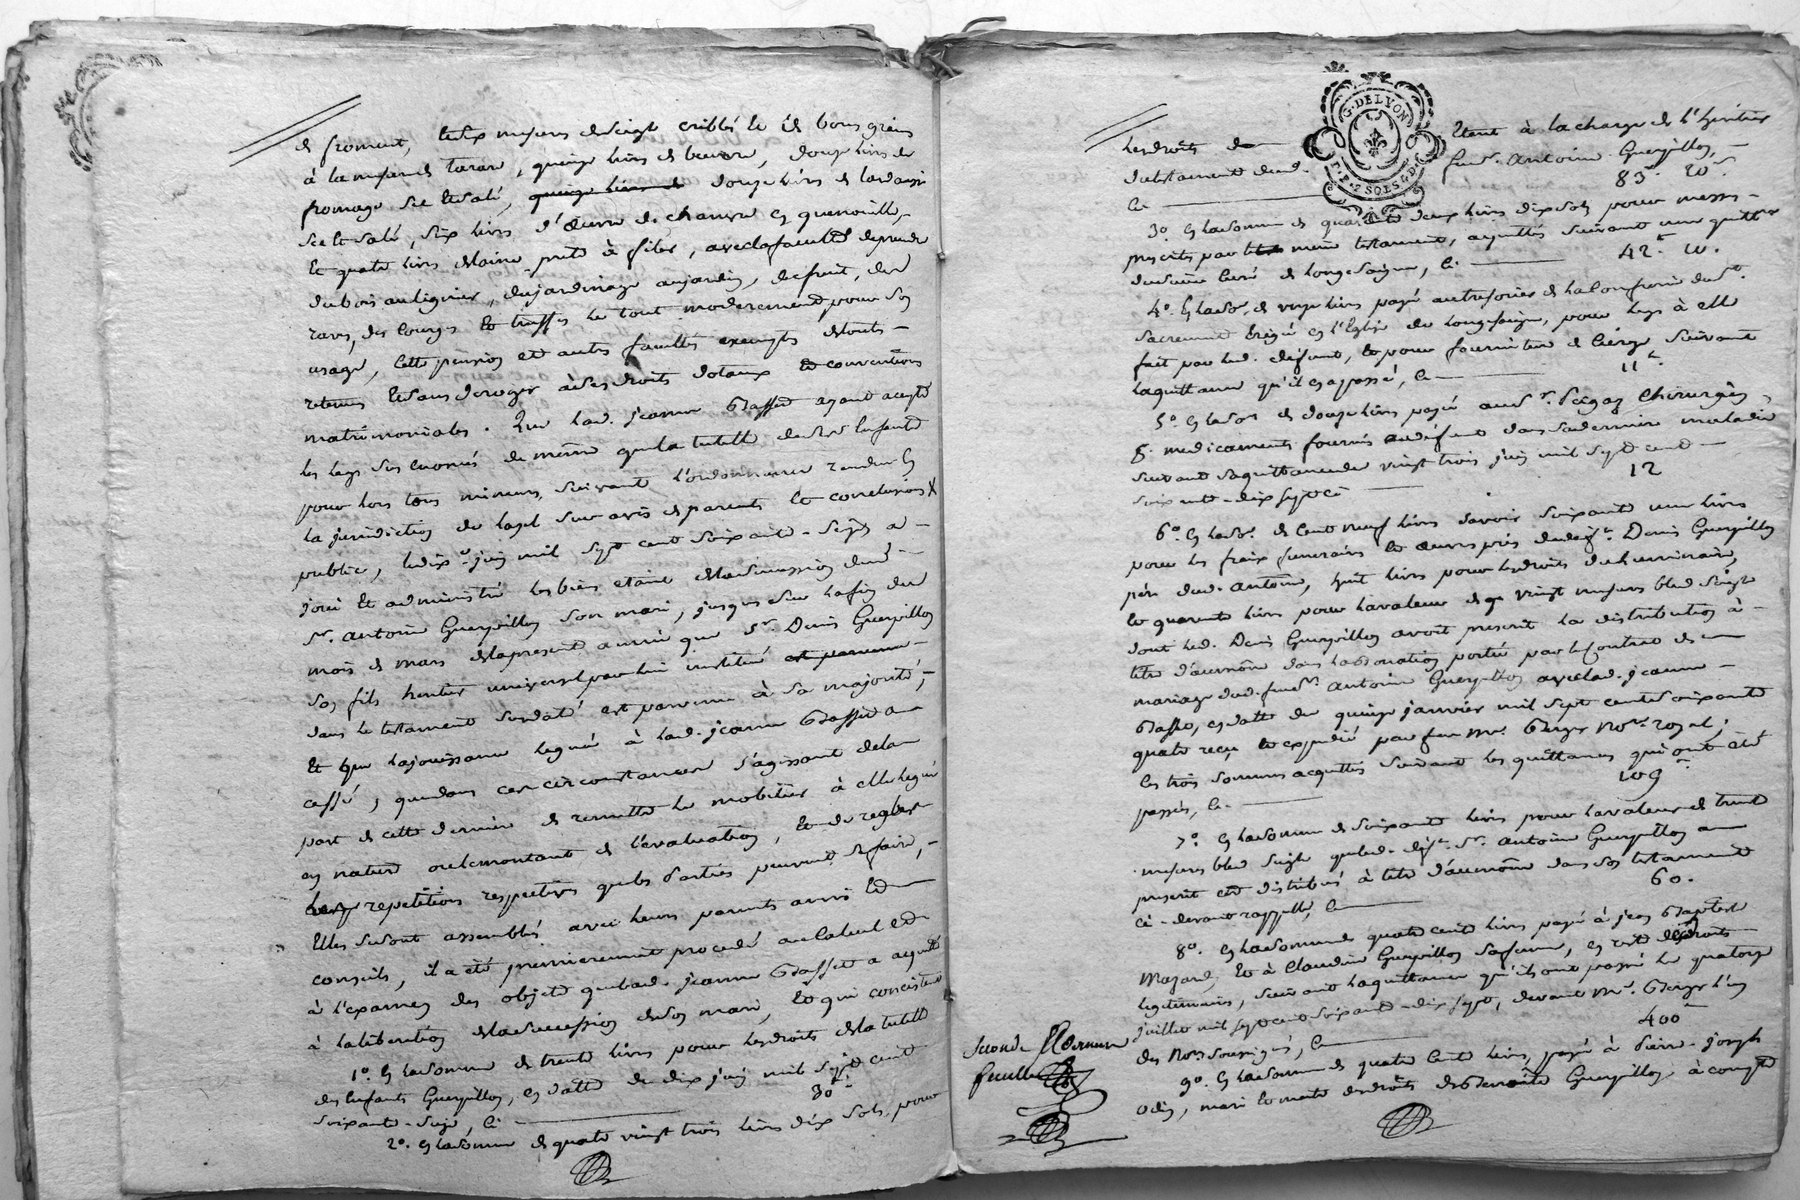 de froment, et dix mesures de seigle criblés le tt bons grains
à la mesure de tarare, quinze livres de beurre, douze livres de
fromage sec et salé, quinze livres de douze livres de lard aussi
sec et salé, six livres d'œuvre de chanvre en quenouille,
et quatre livres de laine prete à filer, avec la faculté de prendre
du bois au lignier, du jardinage au jardin, de fruit, des
raves, des courges et truffes le tout moderement pour son
usage, cette pension et autres facultés exempts de touts
retenues et sans deroger à ses droits dotaux et conventions
matrimoniales. Que lad. jeanne Basset ayant accepté
les legs sus enoncés de même que la tutelle de ses enfants
pour lors tous mineurs, suivant l'ordonnance rendue en
la jurisdiction de laye sur avis de parents et conclusions
public, le dix juin mil sept cent soixante-seize a
joui et administré les biens et aine de la succession dud.
Sr. Antoine Guerpillon son mari, jusques sur la fin du
mois de mars de la presente année que Sr. Denis Guerpillon
son fils heritier universel par lui institué est parvenu
dans le testament susdaté est parvenu à sa majorité,
et que la jouissance leguée à lad. jeanne Basset a
cessé, que dans ces circonstances s'agissant de la
part de cette derniere de remettre le mobilier à elle legué
en nature ou le montant de l'evaluation, et de regler
les repetitions respectives que les parties peuvent se faire,
Elles se sont assemblés avec leurs parents amis et
conseils, il a été premierement procedé au calcul et
à l'examen des objets que lad. jeanne Basset a acquitté
à la liberation de la succession de son mari, et qui consistent
1º. En la somme de trente livres pour les droits de la tutelle
des enfants Guerpillon, en datte du dix juin mil sept cent
soixante-seize, ci 30
2º. En la somme de quatre vingt trois livres dix sols, pour
G. DE LYON
les droits de Etant à la charge de l'heritier
du testament dud. feu Sr. Antoine Guerpillon
ci 83. 10.
3º. En la somme de quarante deux livres dix sols pour messes
prescrits par le même testament, acquittés suivant une quittance
du sieur Curé de longessaigne, ci 42. 10.
4º. En la so. de onze livres payé au tresorier de la confrerie du St.
Sacrement Erigée en l'Eglise de longessaigne, pour legs à elle
fait par led. defunt, et pour fourniture de cierge suivant
la quittance qu'il en a passé, ci 11
5º. En la so. de douze livres payé aud. Sr. Chirurgien,
p. medicaments fournis au defunt dans sa derniere maladie
suivant sa quittance du vingt trois juin mil sept cent
soixante-dix sept ci 12
6º. En la so. de Cent neuf livres savoir soixante une livres
pour les fraix funeraires et œuvres pies dud. deft. Denis Guerpillon
père dud. Antoine, huit livres pour les droits du luminaire,
et quarante livres pour la valeur de vingt mesures bled seigle
dont led. Denis Guerpillon avoit prescrit la distribution à
titre d'aumône dans la donation portée par le Contrat de
mariage dud. feu Sr. Antoine Guerpillon avec lad. jeanne
Basset, en datte du quinze janvier mil sept cent cinquante
quatre reçu et expedié par feu Me. Berger Nore. royal,
les trois sommes acquittés suivant les quittances qui ont été
passés, ci 109
7º. En la somme de soixante livres pour la valeur de trente
mesures bled seigle que led. deft. Sr. Antoine Guerpillon a
prescrit être distribués à titre d'aumône dans son testament
ci-devant rappellé, ci 60.
8º. En la somme de quatre cent livres payé à jean Baptiste
Mazard, et à Claudine Guerpillon sa femme, en reste de droits
legitimaires, suivant la quittance qu'ils ont passé le quatorze
juillet mil sept cent soixante-dix sept, devant Me. Berger l'un
des Nores soussignés, ci 400
9º. En la somme de quatre cent livres, payé à Pierre-joseph
Odin, mari et maitre des droits de Benoite Guerpillon à compte
Seconde et derniere
feuille